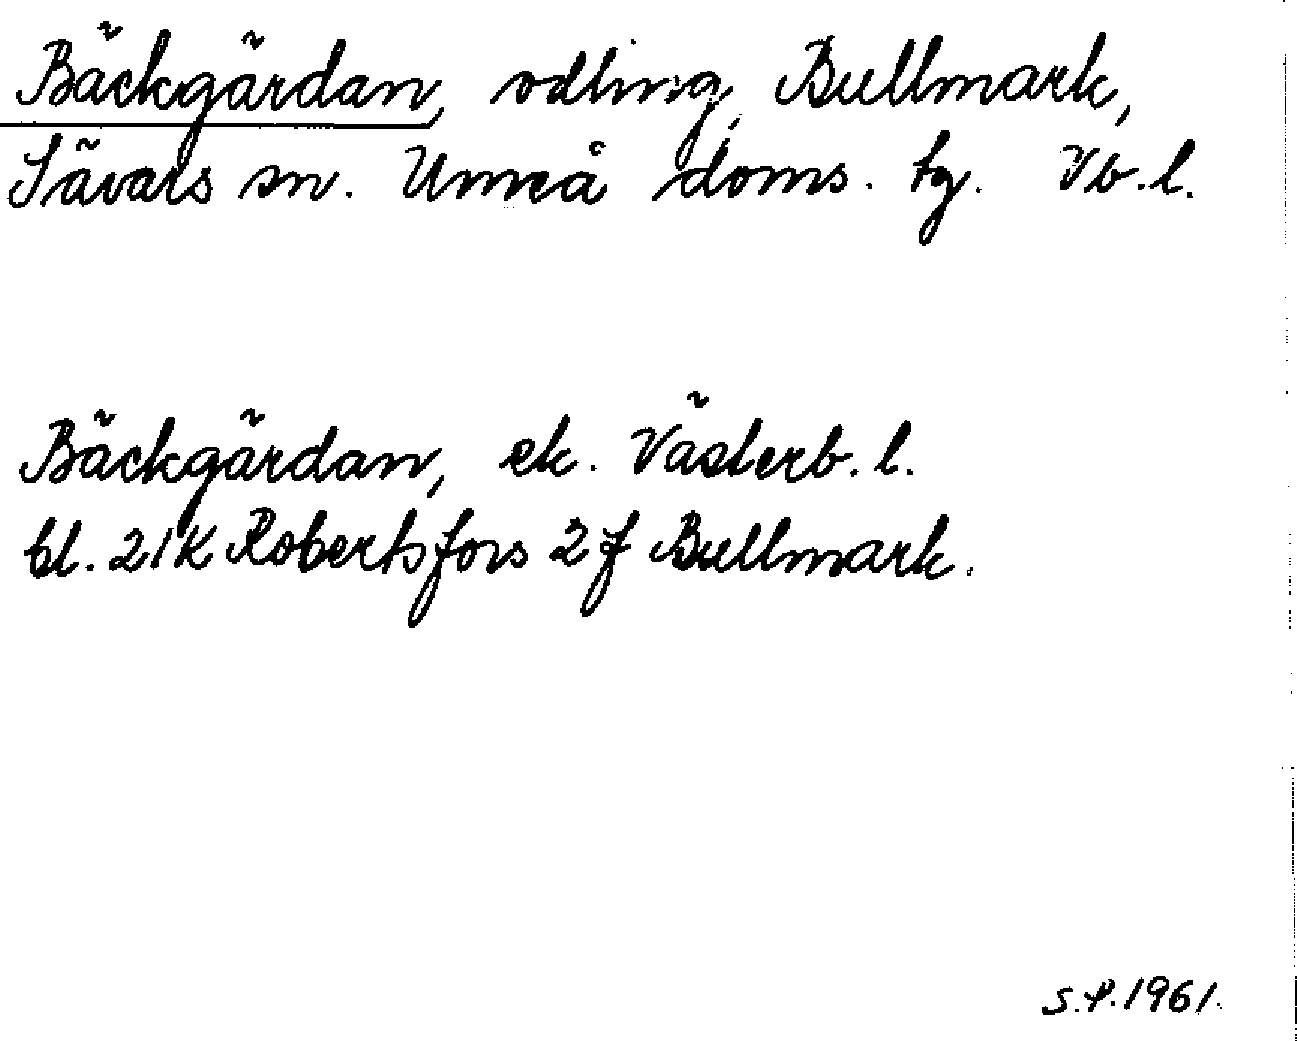 Bäckgärdan, odling, Bullmark,
Sävars sn. Umeå doms. tg. Vb.l.
Bäckgärdan, ek. Västerb.l.
bl. 21K Robertsfors 2f Bullmark.
S.P.1961.